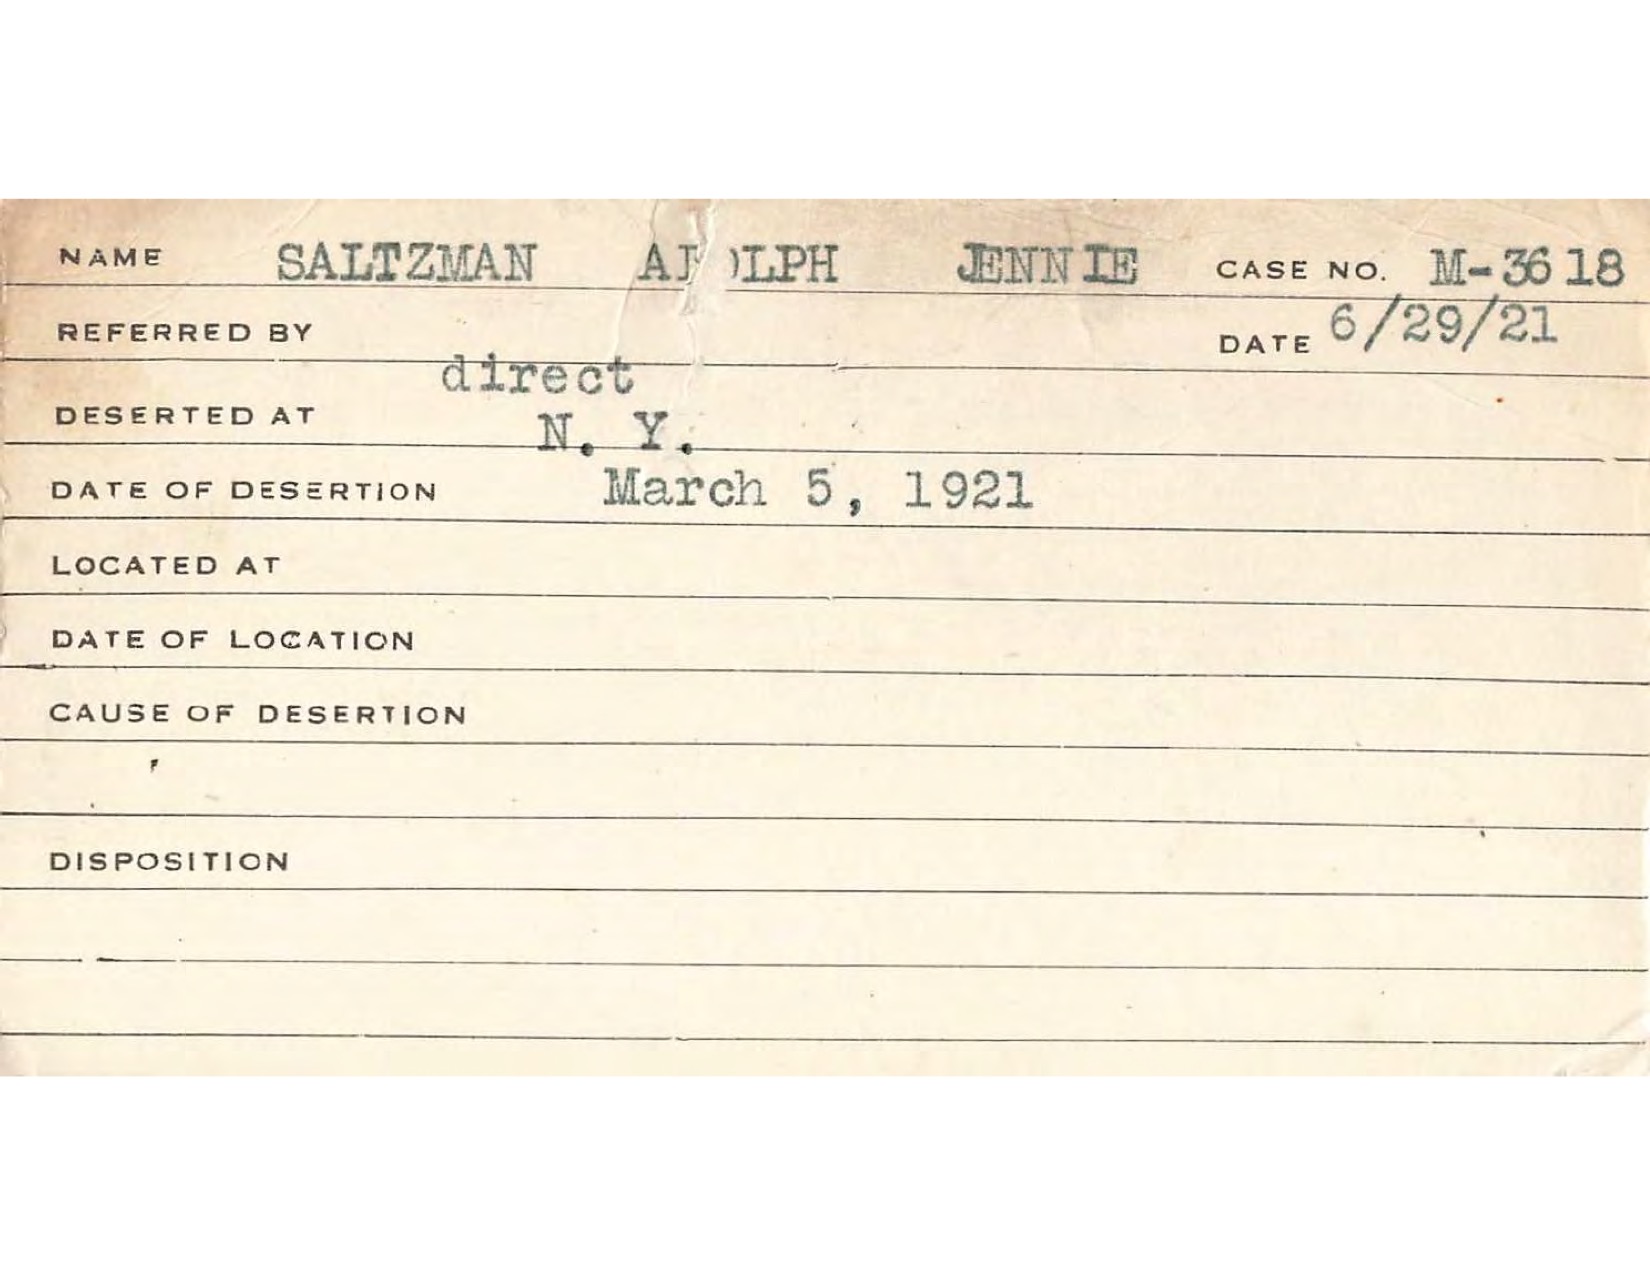 NAME SALTZMAN ADOLPH JENNIE CASE NO. M-3618
REFERRED BY direct DATE 6/29/21
DESERTED AT N. Y.
DATE OF DESERTION March 5, 1921
LOCATED AT
DATE OF LOCATION
CAUSE OF DESERTION
DISPOSITION